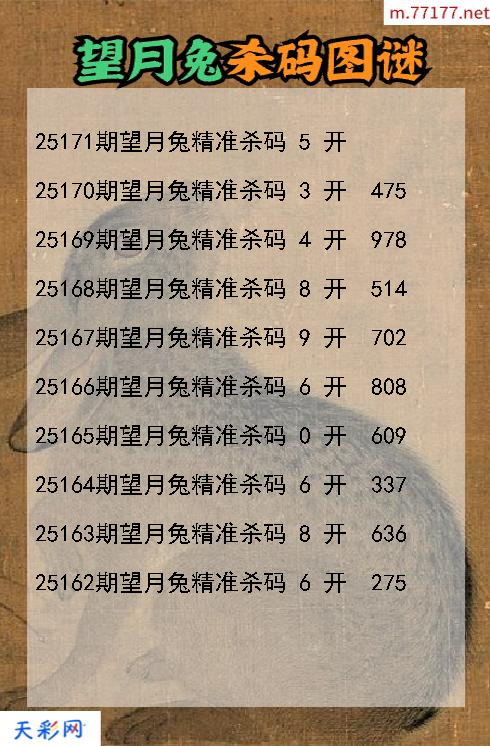 m.77177.net
望月兔杀码图谜
25171期望月兔精准杀码 5 开
25170期望月兔精准杀码 3 开 475
25169期望月兔精准杀码 4 开 978
25168期望月兔精准杀码 8 开 514
25167期望月兔精准杀码 9 开 702
25166期望月兔精准杀码 6 开 808
25165期望月兔精准杀码 0 开 609
25164期望月兔精准杀码 6 开 337
25163期望月兔精准杀码 8 开 636
25162期望月兔精准杀码 6 开 275
天彩网